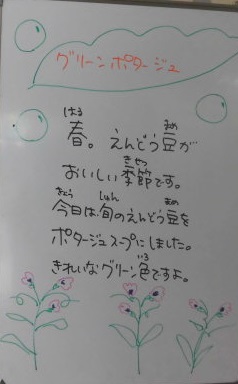 グリーンポタージュ
はる まめ
春。えんどう豆が
きせつ
おいしい季節です。
きょう しゅん まめ
今日は旬のえんどう豆を
ポタージュスープにしました。
いろ
きれいなグリーン色ですよ。